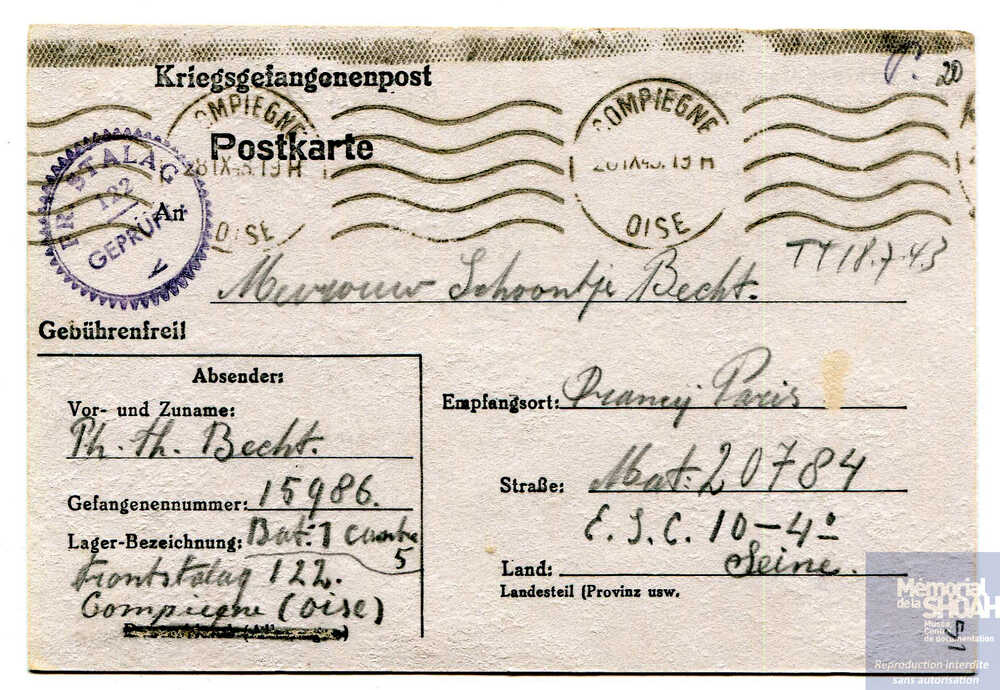 20
Kriegsgefangenenpost
COMPIEGNE
28 IX 43. 19 H
OISE
COMPIEGNE
28 IX 43. 19 H
OISE
Postkarte
FRT STALAG
122
GEPRÜFT
An
TT 18.7.43
Mevrouw Schoontje Becht.
Gebührenfrei!
Absender:
Vor- und Zuname:
Ph. Th. Becht.
Gefangenennummer: 15986.
Lager-Bezeichnung: Bat: 1
5
Frontstalag 122.
Compiegne (Oise)
Empfangsort: Drancy Paris
Straße: Mat: 20784
E. S. C. 10-4°
Seine.
Land:
Landesteil (Provinz usw.
Mémorial
de la SHOAH
Musée
Centre
de documentation
Reproduction interdite
sans autorisation